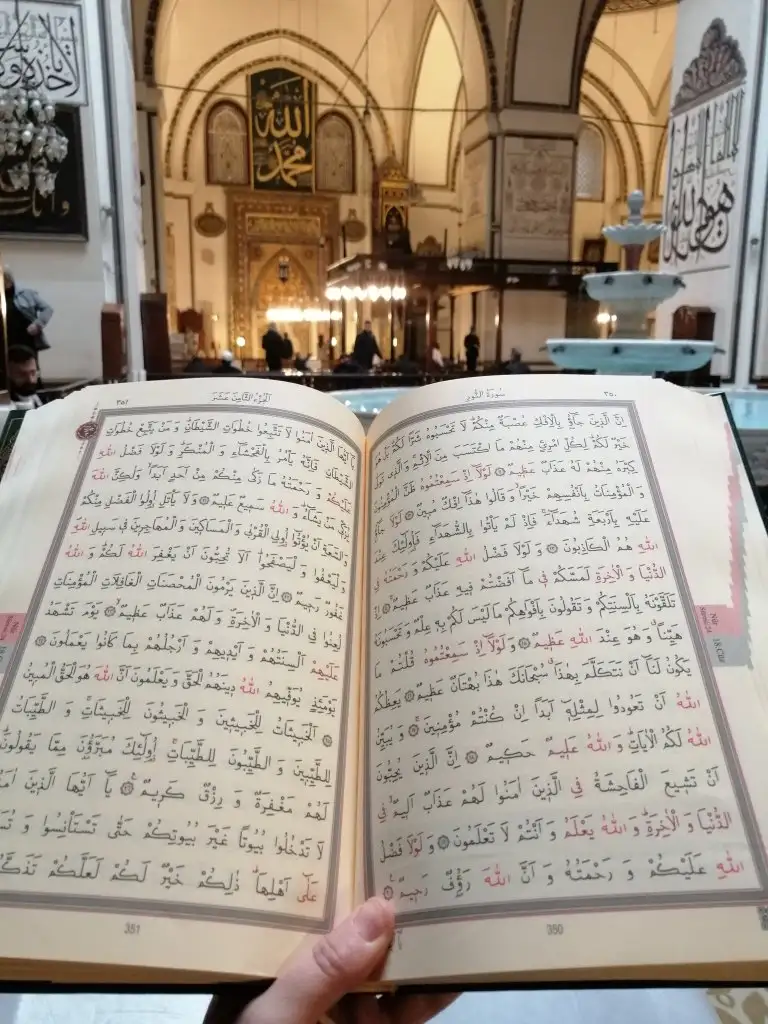 الله
محمد
سُورَةُ النُّورِ
٣٥٠
اِنَّ الَّذ۪ينَ جَٓاؤُ۫ بِالْاِفْكِ عُصْبَةٌ مِنْكُمْۜ لَا تَحْسَبُوهُ شَرًّا لَكُمْۜ بَلْ هُوَ
خَيْرٌ لَكُمْۜ لِكُلِّ امْرِئٍ مِنْهُمْ مَا اكْتَسَبَ مِنَ الْاِثْمِۚ وَالَّذ۪ي تَوَلّٰى
كِبْرَهُ مِنْهُمْ لَهُ عَذَابٌ عَظ۪يمٌ ۝ لَوْلَٓا اِذْ سَمِعْتُمُوهُ ظَنَّ الْمُؤْمِنُونَ
وَالْمُؤْمِنَاتُ بِاَنْفُسِهِمْ خَيْرًاۙ وَقَالُوا هٰذَٓا اِفْكٌ مُب۪ينٌ ۝ لَوْلَا جَٓاؤُ۫
عَلَيْهِ بِاَرْبَعَةِ شُهَدَٓاءَۚ فَاِذْ لَمْ يَأْتُوا بِالشُّهَدَٓاءِ فَاُو۬لٰٓئِكَ عِنْدَ
اللّٰهِ هُمُ الْكَاذِبُونَ ۝ وَلَوْلَا فَضْلُ اللّٰهِ عَلَيْكُمْ وَرَحْمَتُهُ فِي
الدُّنْيَا وَالْاٰخِرَةِ لَمَسَّكُمْ ف۪ي مَٓا اَفَضْتُمْ ف۪يهِ عَذَابٌ عَظ۪يمٌۚ ۝ اِذْ
تَلَقَّوْنَهُ بِاَلْسِنَتِكُمْ وَتَقُولُونَ بِاَفْوَاهِكُمْ مَا لَيْسَ لَكُمْ بِه۪ عِلْمٌ وَتَحْسَبُونَهُ
هَيِّنًاۗ وَهُوَ عِنْدَ اللّٰهِ عَظ۪يمٌ ۝ وَلَوْلَٓا اِذْ سَمِعْتُمُوهُ قُلْتُمْ مَا
يَكُونُ لَنَٓا اَنْ نَتَكَلَّمَ بِهٰذَاۗ سُبْحَانَكَ هٰذَا بُهْتَانٌ عَظ۪يمٌ ۝ يَعِظُكُمُ
اللّٰهُ اَنْ تَعُودُوا لِمِثْلِه۪ٓ اَبَدًا اِنْ كُنْتُمْ مُؤْمِن۪ينَۚ ۝ وَيُبَيِّنُ
اللّٰهُ لَكُمُ الْاٰيَاتِۜ وَاللّٰهُ عَل۪يمٌ حَك۪يمٌ ۝ اِنَّ الَّذ۪ينَ يُحِبُّونَ
اَنْ تَش۪يعَ الْفَاحِشَةُ فِي الَّذ۪ينَ اٰمَنُوا لَهُمْ عَذَابٌ اَل۪يمٌۙ فِي
الدُّنْيَا وَالْاٰخِرَةِۜ وَاللّٰهُ يَعْلَمُ وَاَنْتُمْ لَا تَعْلَمُونَ ۝ وَلَوْلَا فَضْلُ
اللّٰهِ عَلَيْكُمْ وَرَحْمَتُهُ وَاَنَّ اللّٰهَ رَؤُ۫فٌ رَح۪يمٌ۟ ۝
350
اَلْجُزْءُ الثَّامِنَ عَشَرَ
٣٥١
يَٓا اَيُّهَا الَّذ۪ينَ اٰمَنُوا لَا تَتَّبِعُوا خُطُوَاتِ الشَّيْطَانِۜ وَمَنْ يَتَّبِعْ خُطُوَاتِ
الشَّيْطَانِ فَاِنَّهُ يَأْمُرُ بِالْفَحْشَٓاءِ وَالْمُنْكَرِۜ وَلَوْلَا فَضْلُ اللّٰهِ
عَلَيْكُمْ وَرَحْمَتُهُ مَا زَكٰى مِنْكُمْ مِنْ اَحَدٍ اَبَدًاۙ وَلٰكِنَّ اللّٰهَ
يُزَكّ۪ي مَنْ يَشَٓاءُۜ وَاللّٰهُ سَم۪يعٌ عَل۪يمٌ ۝ وَلَا يَأْتَلِ اُو۬لُوا الْفَضْلِ مِنْكُمْ
وَالسَّعَةِ اَنْ يُؤْتُٓوا اُو۬لِي الْقُرْبٰى وَالْمَسَاك۪ينَ وَالْمُهَاجِر۪ينَ ف۪ي سَب۪يلِ اللّٰهِۖ
وَلْيَعْفُوا وَلْيَصْفَحُواۜ اَلَا تُحِبُّونَ اَنْ يَغْفِرَ اللّٰهُ لَكُمْۜ وَاللّٰهُ
غَفُورٌ رَح۪يمٌ ۝ اِنَّ الَّذ۪ينَ يَرْمُونَ الْمُحْصَنَاتِ الْغَافِلَاتِ الْمُؤْمِنَاتِ
لُعِنُوا فِي الدُّنْيَا وَالْاٰخِرَةِۖ وَلَهُمْ عَذَابٌ عَظ۪يمٌۙ ۝ يَوْمَ تَشْهَدُ
عَلَيْهِمْ اَلْسِنَتُهُمْ وَاَيْد۪يهِمْ وَاَرْجُلُهُمْ بِمَا كَانُوا يَعْمَلُونَ ۝
يَوْمَئِذٍ يُوَفّ۪يهِمُ اللّٰهُ د۪ينَهُمُ الْحَقَّ وَيَعْلَمُونَ اَنَّ اللّٰهَ هُوَ الْحَقُّ الْمُب۪ينُ
۝ اَلْخَب۪يثَاتُ لِلْخَب۪يث۪ينَ وَالْخَب۪يثُونَ لِلْخَب۪يثَاتِۚ وَالطَّيِّبَاتُ
لِلطَّيِّب۪ينَ وَالطَّيِّبُونَ لِلطَّيِّبَاتِۚ اُو۬لٰٓئِكَ مُبَرَّؤُ۫نَ مِمَّا يَقُولُونَۜ
لَهُمْ مَغْفِرَةٌ وَرِزْقٌ كَر۪يمٌ۟ ۝ يَٓا اَيُّهَا الَّذ۪ينَ اٰمَنُوا
لَا تَدْخُلُوا بُيُوتًا غَيْرَ بُيُوتِكُمْ حَتّٰى تَسْتَأْنِسُوا
عَلٰٓى اَهْلِهَاۜ ذٰلِكُمْ خَيْرٌ لَكُمْ لَعَلَّكُمْ
351